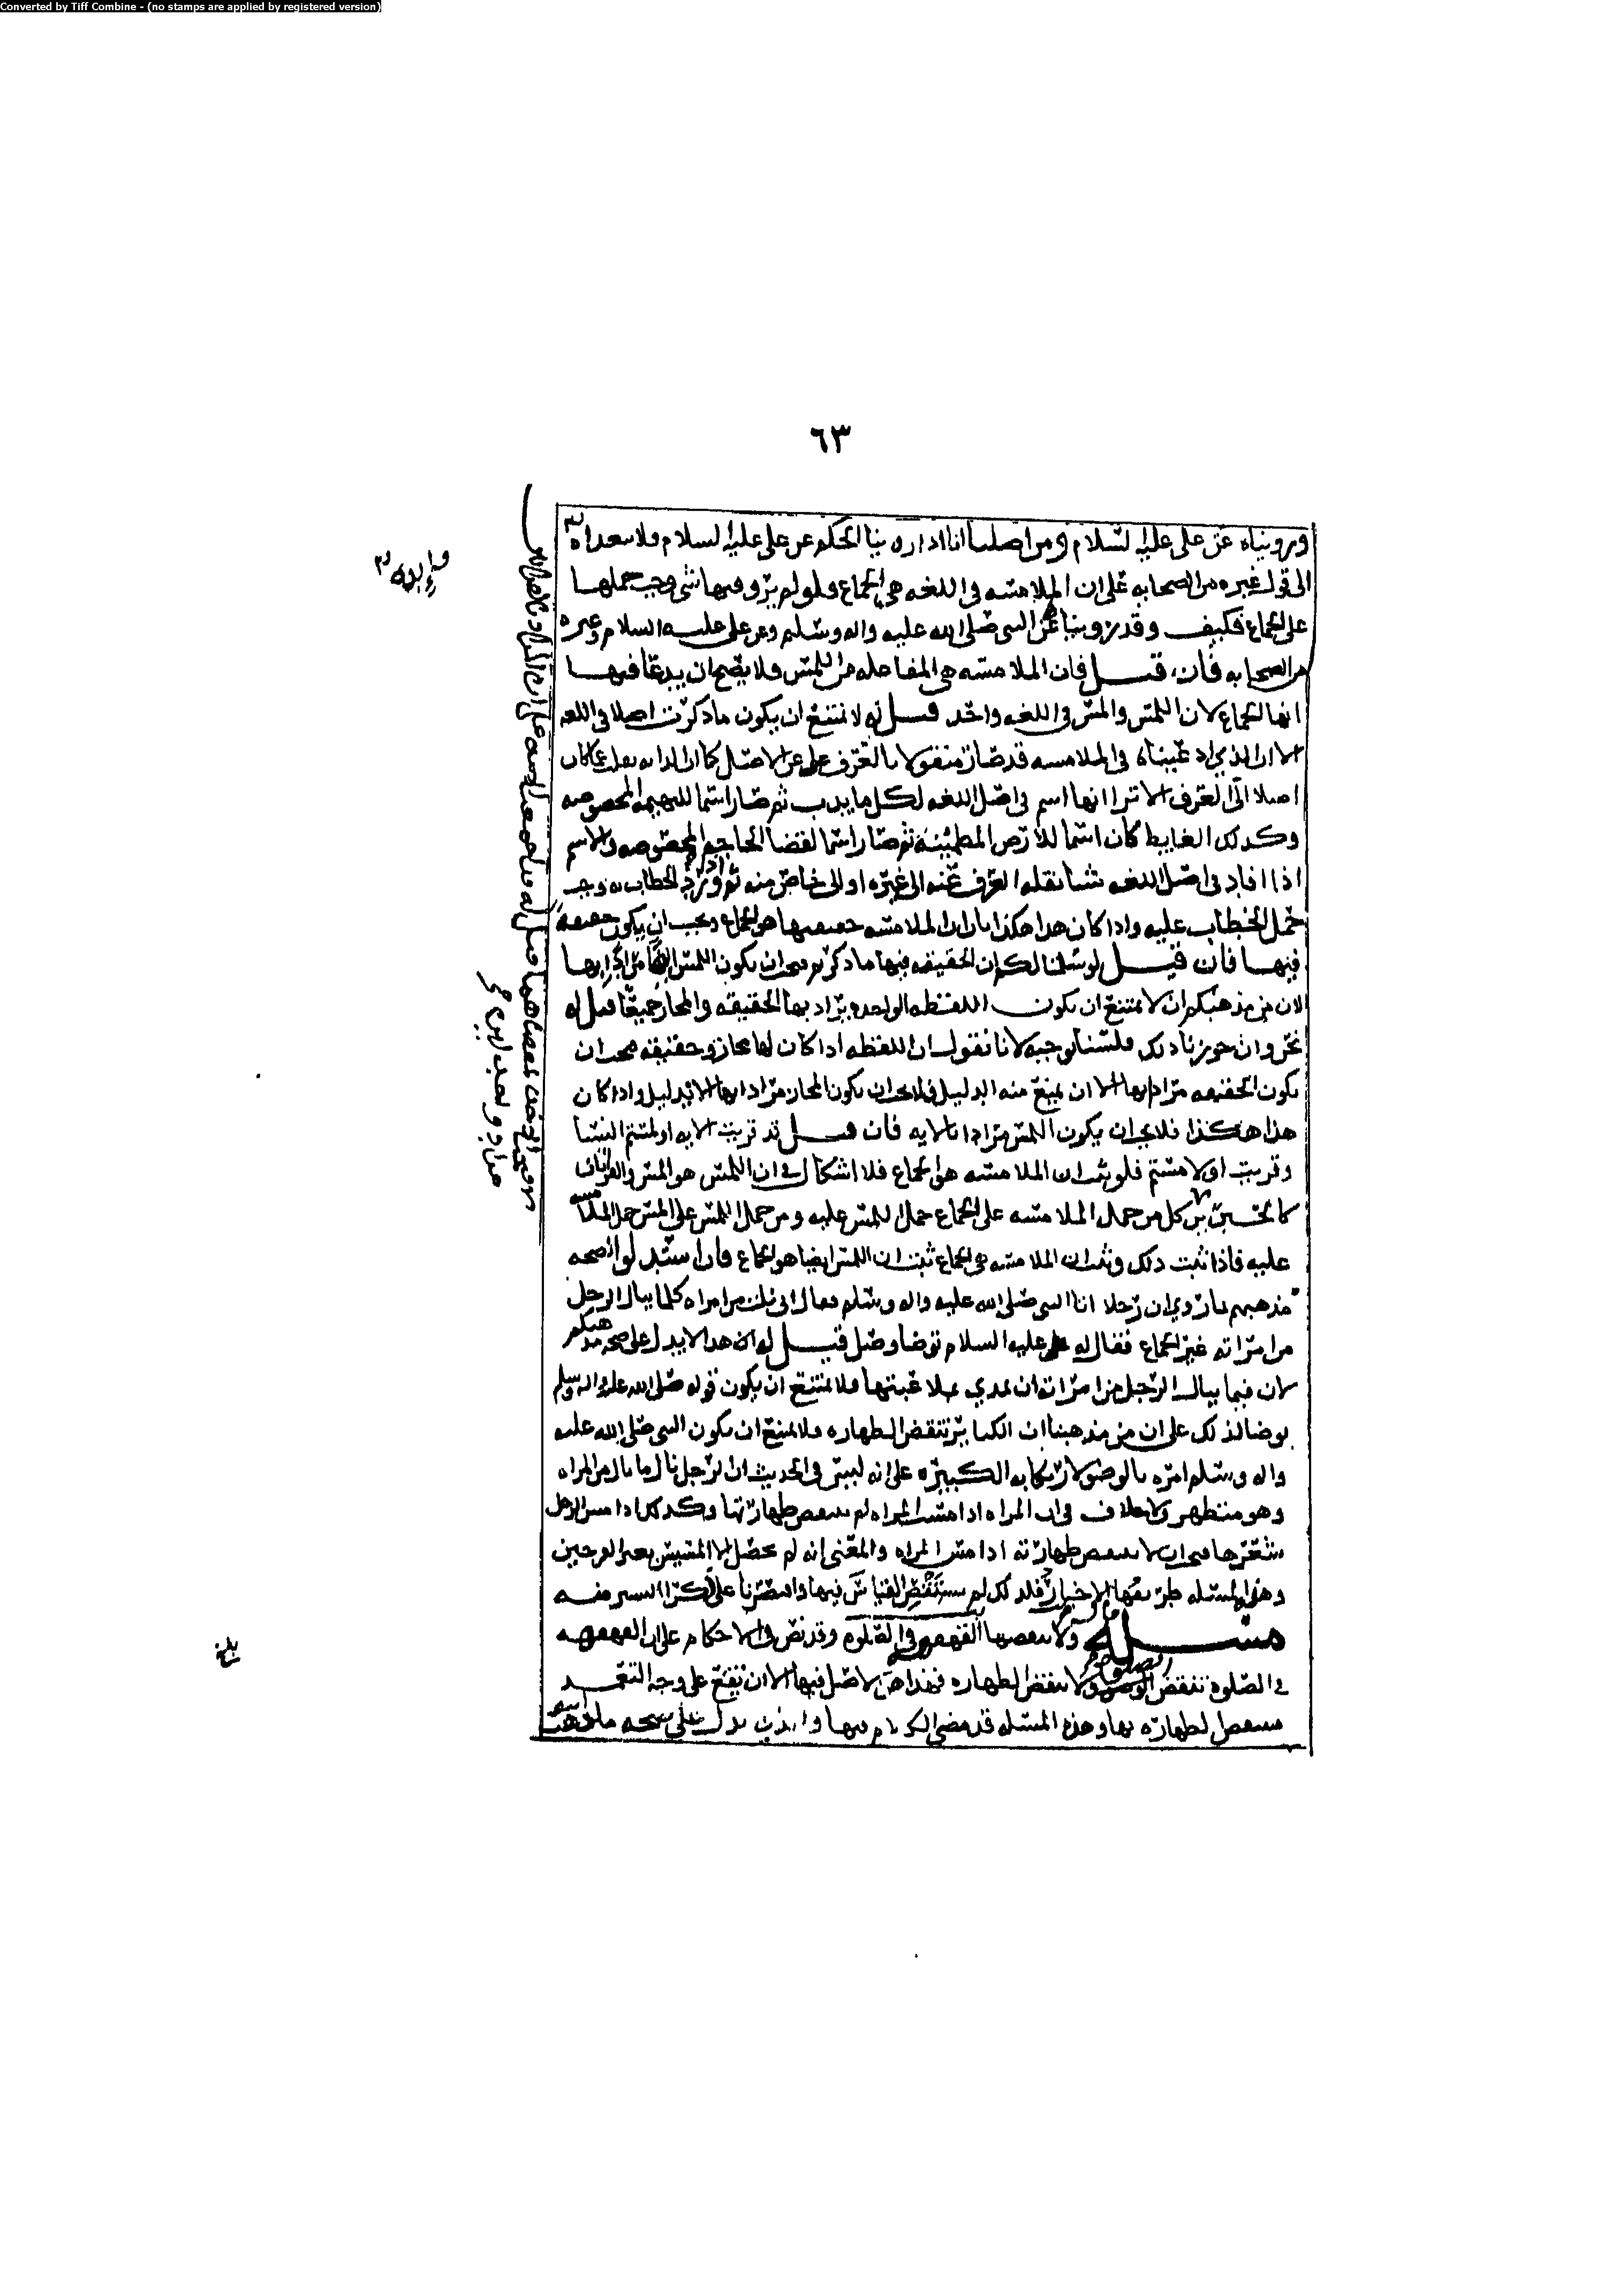 Converted by Tiff Combine - (no stamps are applied by registered version)
٦٣
ورويناه عن علي عليه السلام ومن اصلنا انا اذا روينا الحكم عن علي عليه السلام فلا نتعداه
الى قول غيره من الصحابه على ان الملامسه في اللغه هي الجماع ولو لم يرو فيها شي وجب حملها
على الجماع فكيف وقد روينا عن النبي صلى الله عليه واله وسلم وعن علي عليه السلام وغيره
من الصحابه فان قيل فان الملامسه هي المفاعله من اللمس فلا يصح ان يدعا فيها
انها الجماع لان اللمس والمس في اللغه واحد قيل له لا يمتنع ان يكون ما ذكرت اصلا في اللغه
الا ان الذي ادعيناه في الملامسه قد صار منقولا بالعرف عن الاصل كما ان الدابه نقلت عما كان
اصلا الى العرف الا ترا انها اسم في اصل اللغه لكل ما يدب ثم صار اسما للبهيمه المخصوصه
وكذلك الغايط كان اسما للارض المطمئنه ثم صار اسما لقضا الحاجه المخصوصه والاسم
اذا افاد في اصل اللغه شيا نقله العرف عنه الى غيره او الى خاص منه ثم ورد الخطاب به وجب
حمل الخطاب عليه واذا كان هذا هكذا بان ان الملامسه حقيقتها هو الجماع ويجب ان يكون حقيقه
فيها فان قيل لو سلمنا لكم ان الحقيقه فيها ما ذكرتم فيجب ان يكون اللمس ايضا مرادا بها
لان من مذهبكم ان لا يمتنع ان يكون اللفظه الواحده يراد بها الحقيقه والمجاز جميعا قيل له
نحن وان جوزنا ذلك فلسنا نوجبه لانا نقول ان اللفظه اذا كان لها مجاز وحقيقه فيجب ان
يكون الحقيقه مرادا بها الا ان يمنع منه الدليل فلا يجب ان يكون المجاز مرادا بها الا بدليل واذا كان
هذا هكذا فلا يجب ان يكون اللمس مرادا بالايه فان قيل قد قريت الايه او لمستم النسا
وقريت او لامستم فلو ثبت ان الملامسه هو الجماع فلا اشكال في ان اللمس هو المس والقراتان
كالخبرين كل من حمل الملامسه على الجماع حمل اللمس عليه ومن حمل اللمس على المس حمل الملامسه
عليه فاذا ثبت ذلك وثبت ان الملامسه هي الجماع ثبت ان اللمس ايضا هو الجماع فان استدلوا لصحه
مذهبهم بما روي ان رجلا اتا النبي صلى الله عليه واله وسلم فقال اني نلت من امراه كلما ينال الرجل
من امراته غير الجماع فقال له عليه السلام توضا وصل قيل له ان هذا لا يدل على صحه مذهبكم
لان فيما ينال الرجل من امراته ان يمذي بملاعبتها فلا يمتنع ان يكون قوله صلى الله عليه واله وسلم
توضا لذلك على ان من مذهبنا ان الكباير تنقض الطهاره فلا يمتنع ان يكون النبي صلى الله عليه
واله وسلم امره بالوضو لارتكابه الكبيره على انه ليس في الحديث ان الرجل نال ما نال من المراه
وهو متطهر ولا خلاف في ان المراه اذا مست المراه لم ينتقض طهارتها وكذلك اذا مس الرجل
شعرها فيجب ان لا ينتقض طهارته اذا مس المراه والمعنى انه لم يحصل الا المسيس بغير الفرجين
وهذه المسئله طريقها الاخبار فلذلك لم نستقص القياس فيها واقتصرنا على ذكر اليسير منه
مسئله ولا ينقضها القهقهه في الصلوه وقد نص في الاحكام على ان القهقهه
في الصلوه تنقض الصلوه ولا تنقض الطهاره فهذا هو الاصل فيها الا ان تقع على وجه التعمد
فينتقض الطهاره بها وهذه المسئله قد مضى الكلام فيها والذي يدل على صحه ما ذهبنا
بلغ